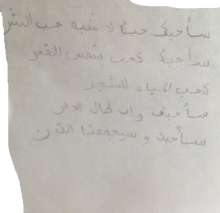 سأحبك حبا لا يشبه حب البشر
سأحبك كحب شمس القمر
كحب المياه للشجر
سأحبك وان طال الدهر
سأحبك و سيجمعنا القدر